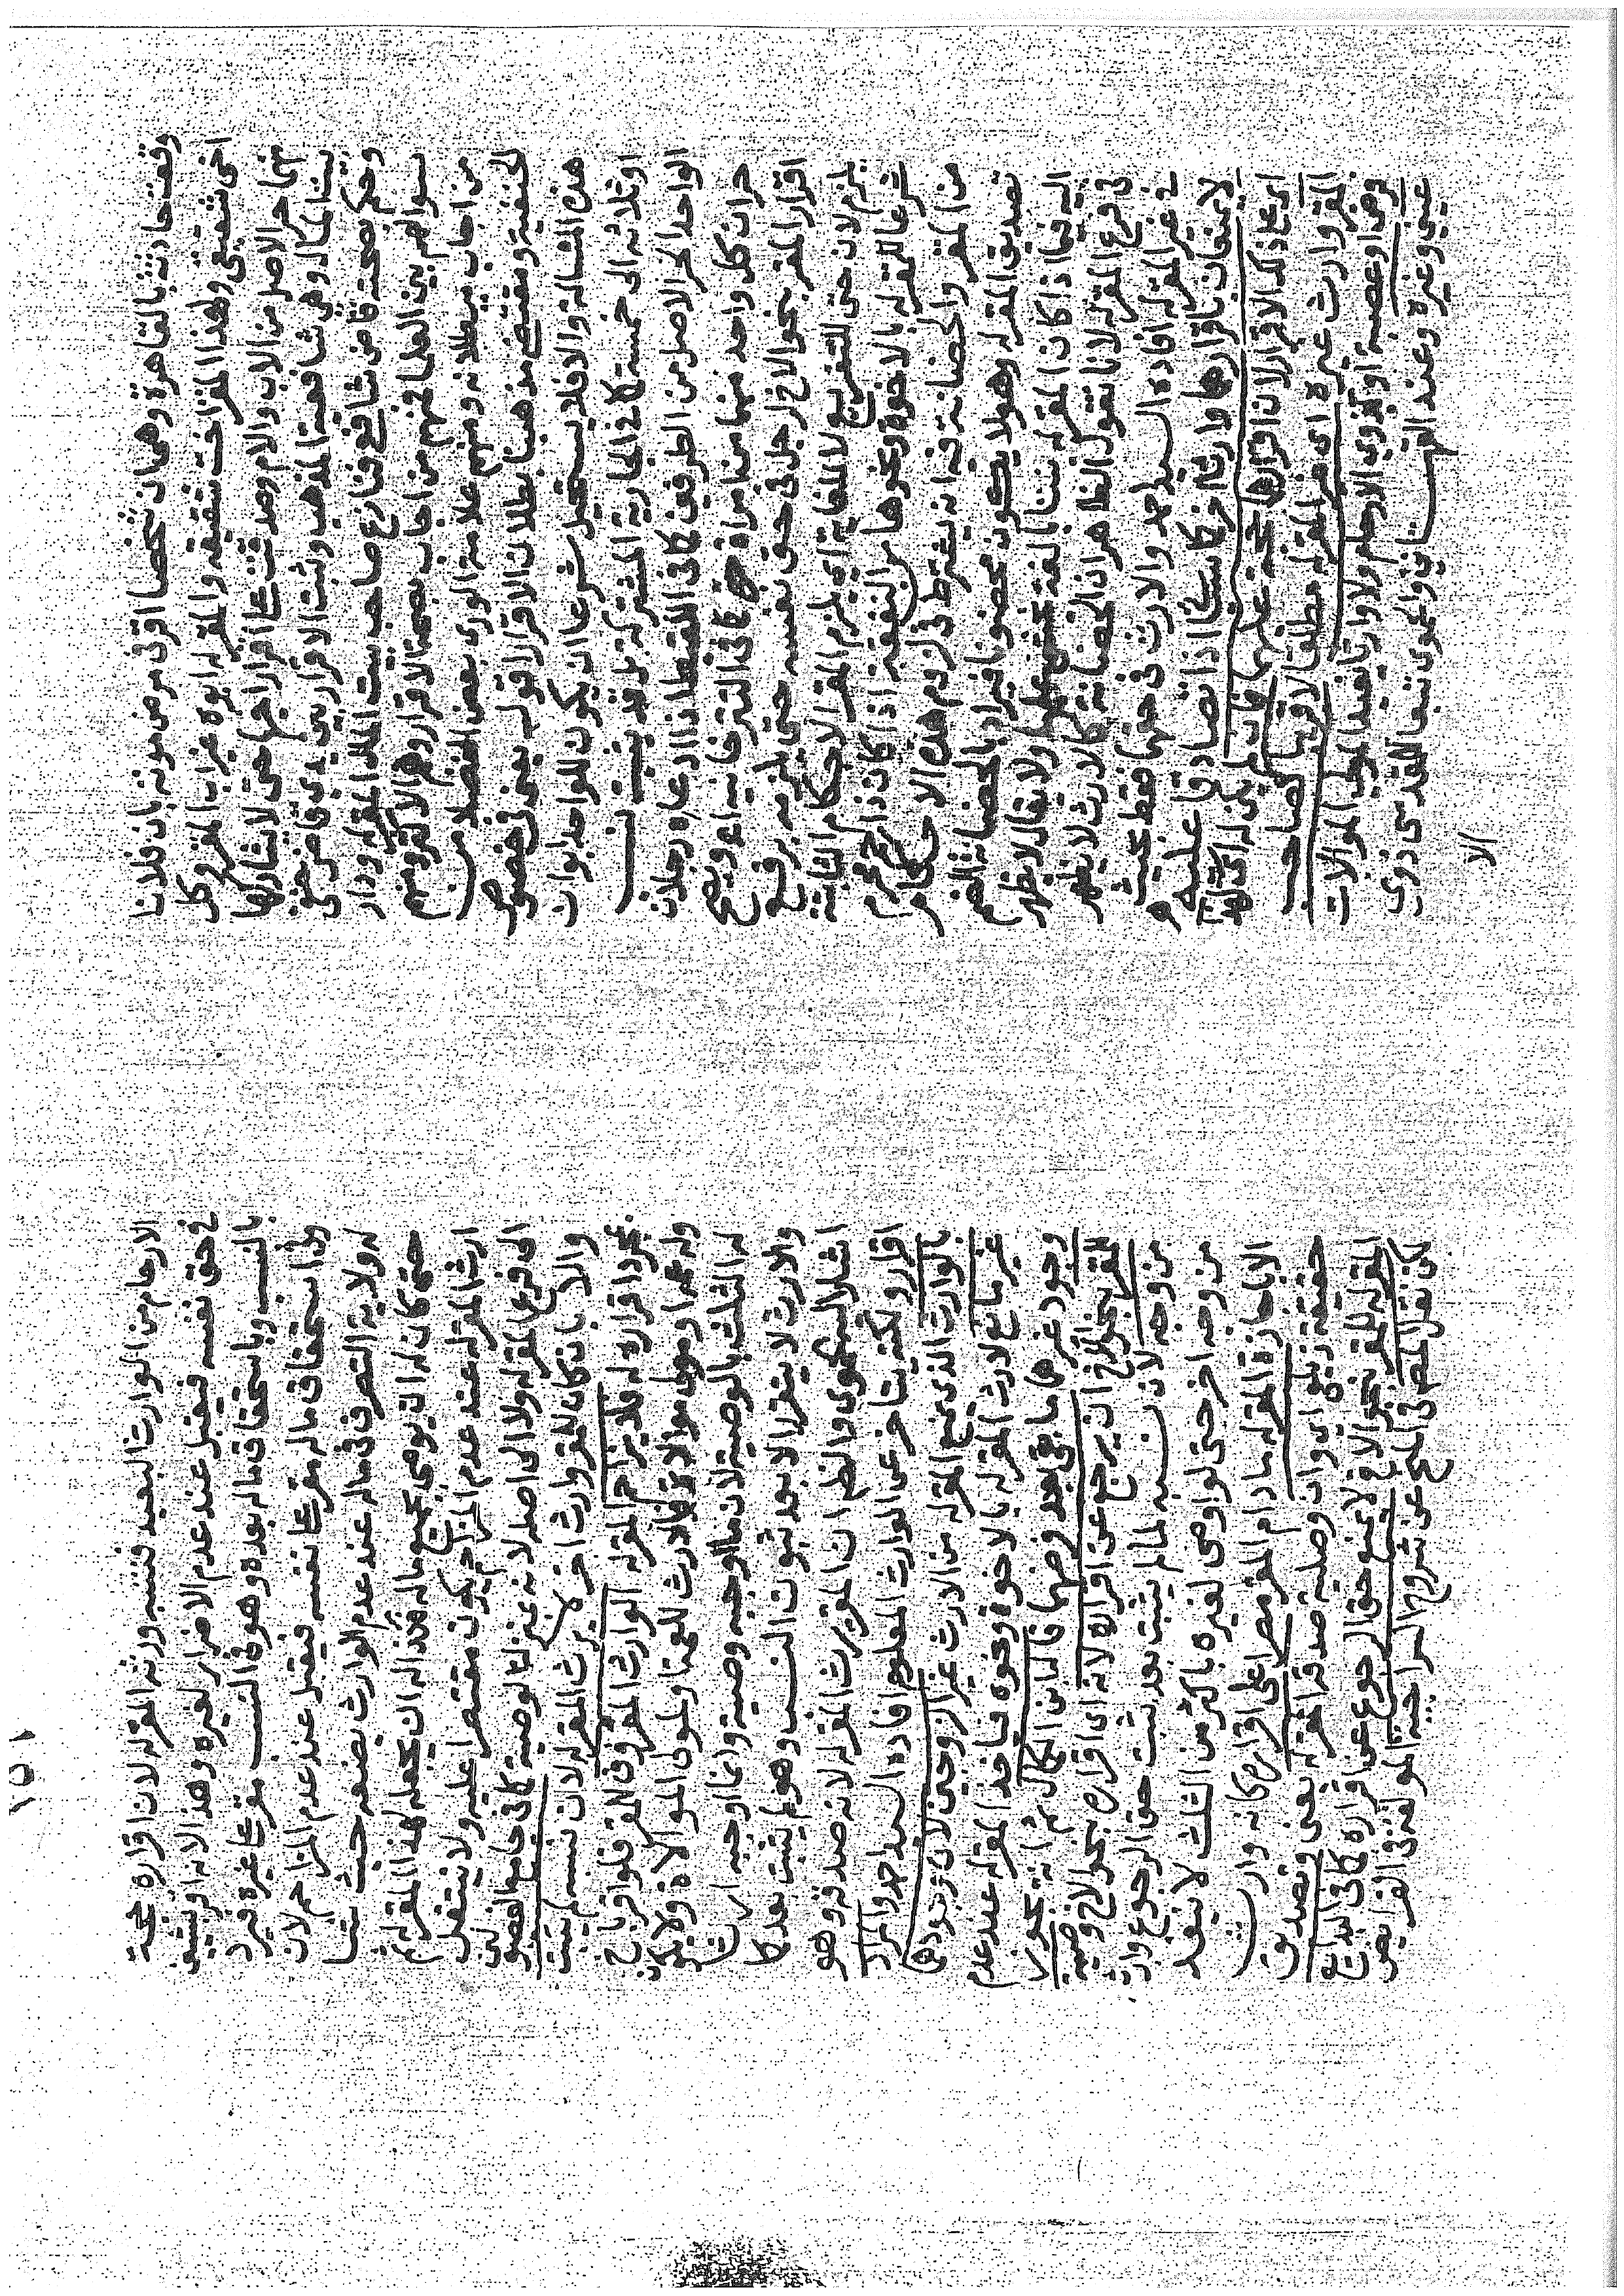 وقعت حادثة بالقاهرة وهي ان شخصا اقر في مرض موته بان فلانا
اخي شقيقي وهذا المقر اخت شقيقه والمقر له ابوه غير اب المقر وكل
منهما حر الاصل من الاب والام وصدقت على اقرار اخيها حتى لا يشاركها
بيت المال وهي شافعية المذهب وثبت الاقرار بين يدي قاض حنفي
وحكم بصحته قاض شافعي فنازع صاحب بيت المال المقر له ودار
سوالهم بين العلما فمنهم من اجاب بصحة الاقرار وهم الاكثر ومنهم
من اجاب ببطلانه ومنهم علامة الورى بعض الفضلا من
الحنفية ومقتضى مذهبنا بطلان الاقرار قوله يعني في خصوص
هذه المسالة والا فلا يستحيل شرعا ان يكون للواحد ابوان
او ثلاثة الى خمسة كما في الجارية المشتركة بل قد يثبت نسب
الواحد الحر الاصل من الطرفين كما في اللقيط اذا ادعاه رجلان
حران كل واحد منهما من امراة حرة كما في التترخانية اه ويصح
اقرار المقر بنحو الاخ لرجل في حق نفسه حتى يلزمه برفع
يلزم لان حتى للتفريع لا للغاية اي يلزم المقر الاحكام الثابتة
شرعا للمقر له بالاخوة ونحوها من النفقة اذا كان ذا رحم محرم
من المقر والحضانة فيه انه يشترط في لزوم هذه الاحكام
تصديق المقر له وهو لا يكون محضونا فيراد بالحضانة الضم
اليه فيما اذا كان المقر له بنتا بالغة يخشى عليها ولا يقال لا يظهر
في فرع المقر له لانا نقول الظاهر ان الحضانة كالارث لا يظهر
في غير المقر له افاده السيد احمد والارث في حقهما فقط بحيث
لا يمنعان باقرارهما وارثا اخر كا ستا اذا تصادقا عليه
اي على ذلك الاقرار لان اقرارهما حجة عليهما فان لم يكن له اي لهذا
المقر وارث غيره اي غير المقر له مطلقا لا قريبا كصاحب
فرض او عصبة او كذوي الارحام ولا وارثا بعيدا كمولى الموالات
عيني وغيره وعند القهستاني والحموي تبعا للمقدسي ذوي
الا
١٥١
الارحام من الوارث البعيد فنسبه ورثه المقر له لان اقراره حجة
في حق نفسه فيقبل عند عدم الاضرار لغيره وهذا لانه اقر بشيئين
بالنسب وباستحقاق ماله بعده وهو في النسب مقر على غيره فيرد
وفي استحقاق ماله مقر على نفسه فيقبل عند عدم المزاحم لان
له ولاية التصرف في ماله عند عدم الوارث بصنعه حيث شا
حتى كان له ان يوصي بجميع ماله فكذا له ان يجعله لهذا المقر له ثم
ارث المقر له عند عدم المزاحم يكون مقتصرا عليه ولا ينتقل
الى فرع المقر له ولا الى اصله لانه بمنزلة الوصية كما في جامع الفصولين
والا بان كان للمقر وارث اخر لا يرث المقر له لان نسبه لم يثبت
بمجرد اقراره له فلا يزاحم المقر له الوارث المعروف المقر فلو اقر باخ
وله عمة او مولى موالاة فالارث للعمة او لمولى الموالاة ولا يكون
له الثلث بالوصية لان ما اوجبه وصية وانما اوجبه ارثا
والارث لا يتقرر الا بعد ثبوت النسب وهو لم يثبت بعد كما
الشلبي الحموي وانظر ان المقر يرث المقر له لانه صدقه وهو
اقار ولكنه يتاخر عن الوارث المعلوم افاده السيد احمد والمراد
بالوارث الذي يمنع المقر له من الارث غير الزوجين لان وجودهما
غير مانع لارث المقر له بالاخوة ونحوه فياخذ المقر له عند عدم
وجود غيرهما ما بقي بعد فرضهما قاله ابن الكمال ثم انه يجوز
للمقر بنحو الاخ ان يرجع عن اقراره لانه اي اقراره بنحو الاخ وصية
من وجه لان نسبه لما لم يثبت بعد ثبت حق الرجوع وارث
من وجه اخر حتى لو اوصى لغيره باكثر من الثلث لا ينفذ
الا باجازة المقر له ما دام المقر مصرا على اقراره كانه وارث
حقيقة زيلعي اي وان وصلية صدقه المقر له يعني وتصديق
المقر له للمقر بنحو الاخ لا يمنع حق الرجوع عن اقراره كما في البدائع
لكن نقل المصنف في المنح عن شروح السراجية المولفة في الفرايض